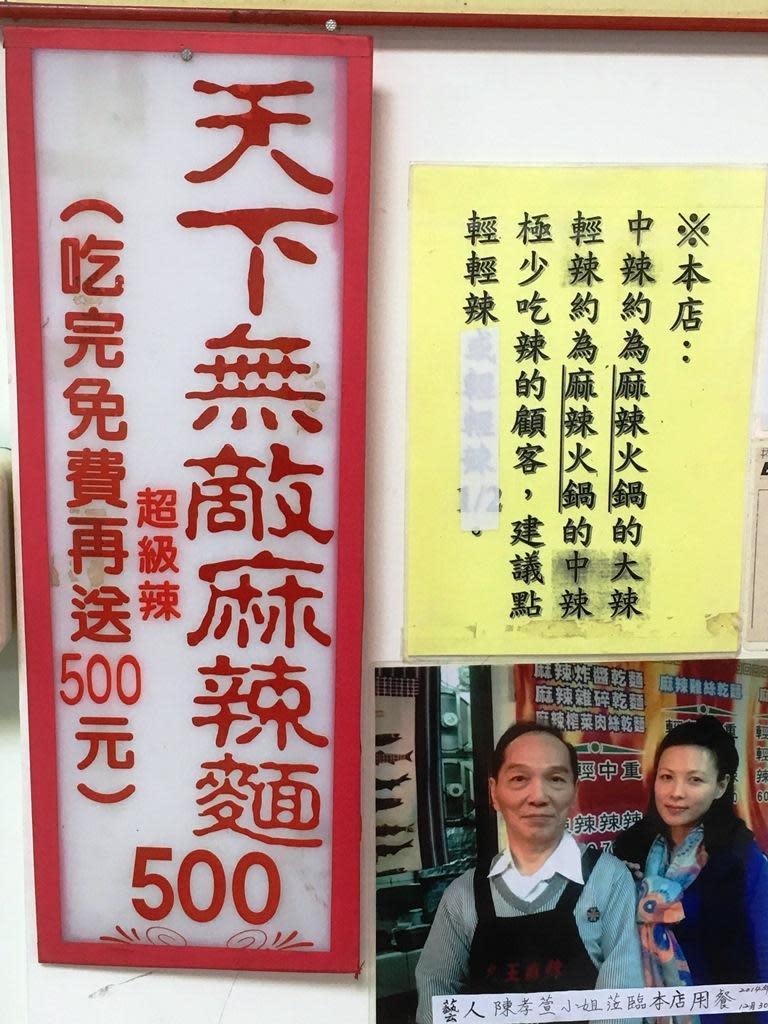 天下無敵麻辣麵500
超級辣
（吃完免費再送500元）
※本店：
中辣約為麻辣火鍋的大辣
輕辣約為麻辣火鍋的中辣
極少吃辣的顧客，建議點
輕輕辣或輕輕辣1/2。
麻辣炸醬乾麵
麻辣雞碎乾麵
麻辣榨菜肉絲乾麵
麻辣雞絲乾麵
輕中重
辣辣辣
藝人陳孝萱小姐蒞臨本店用餐